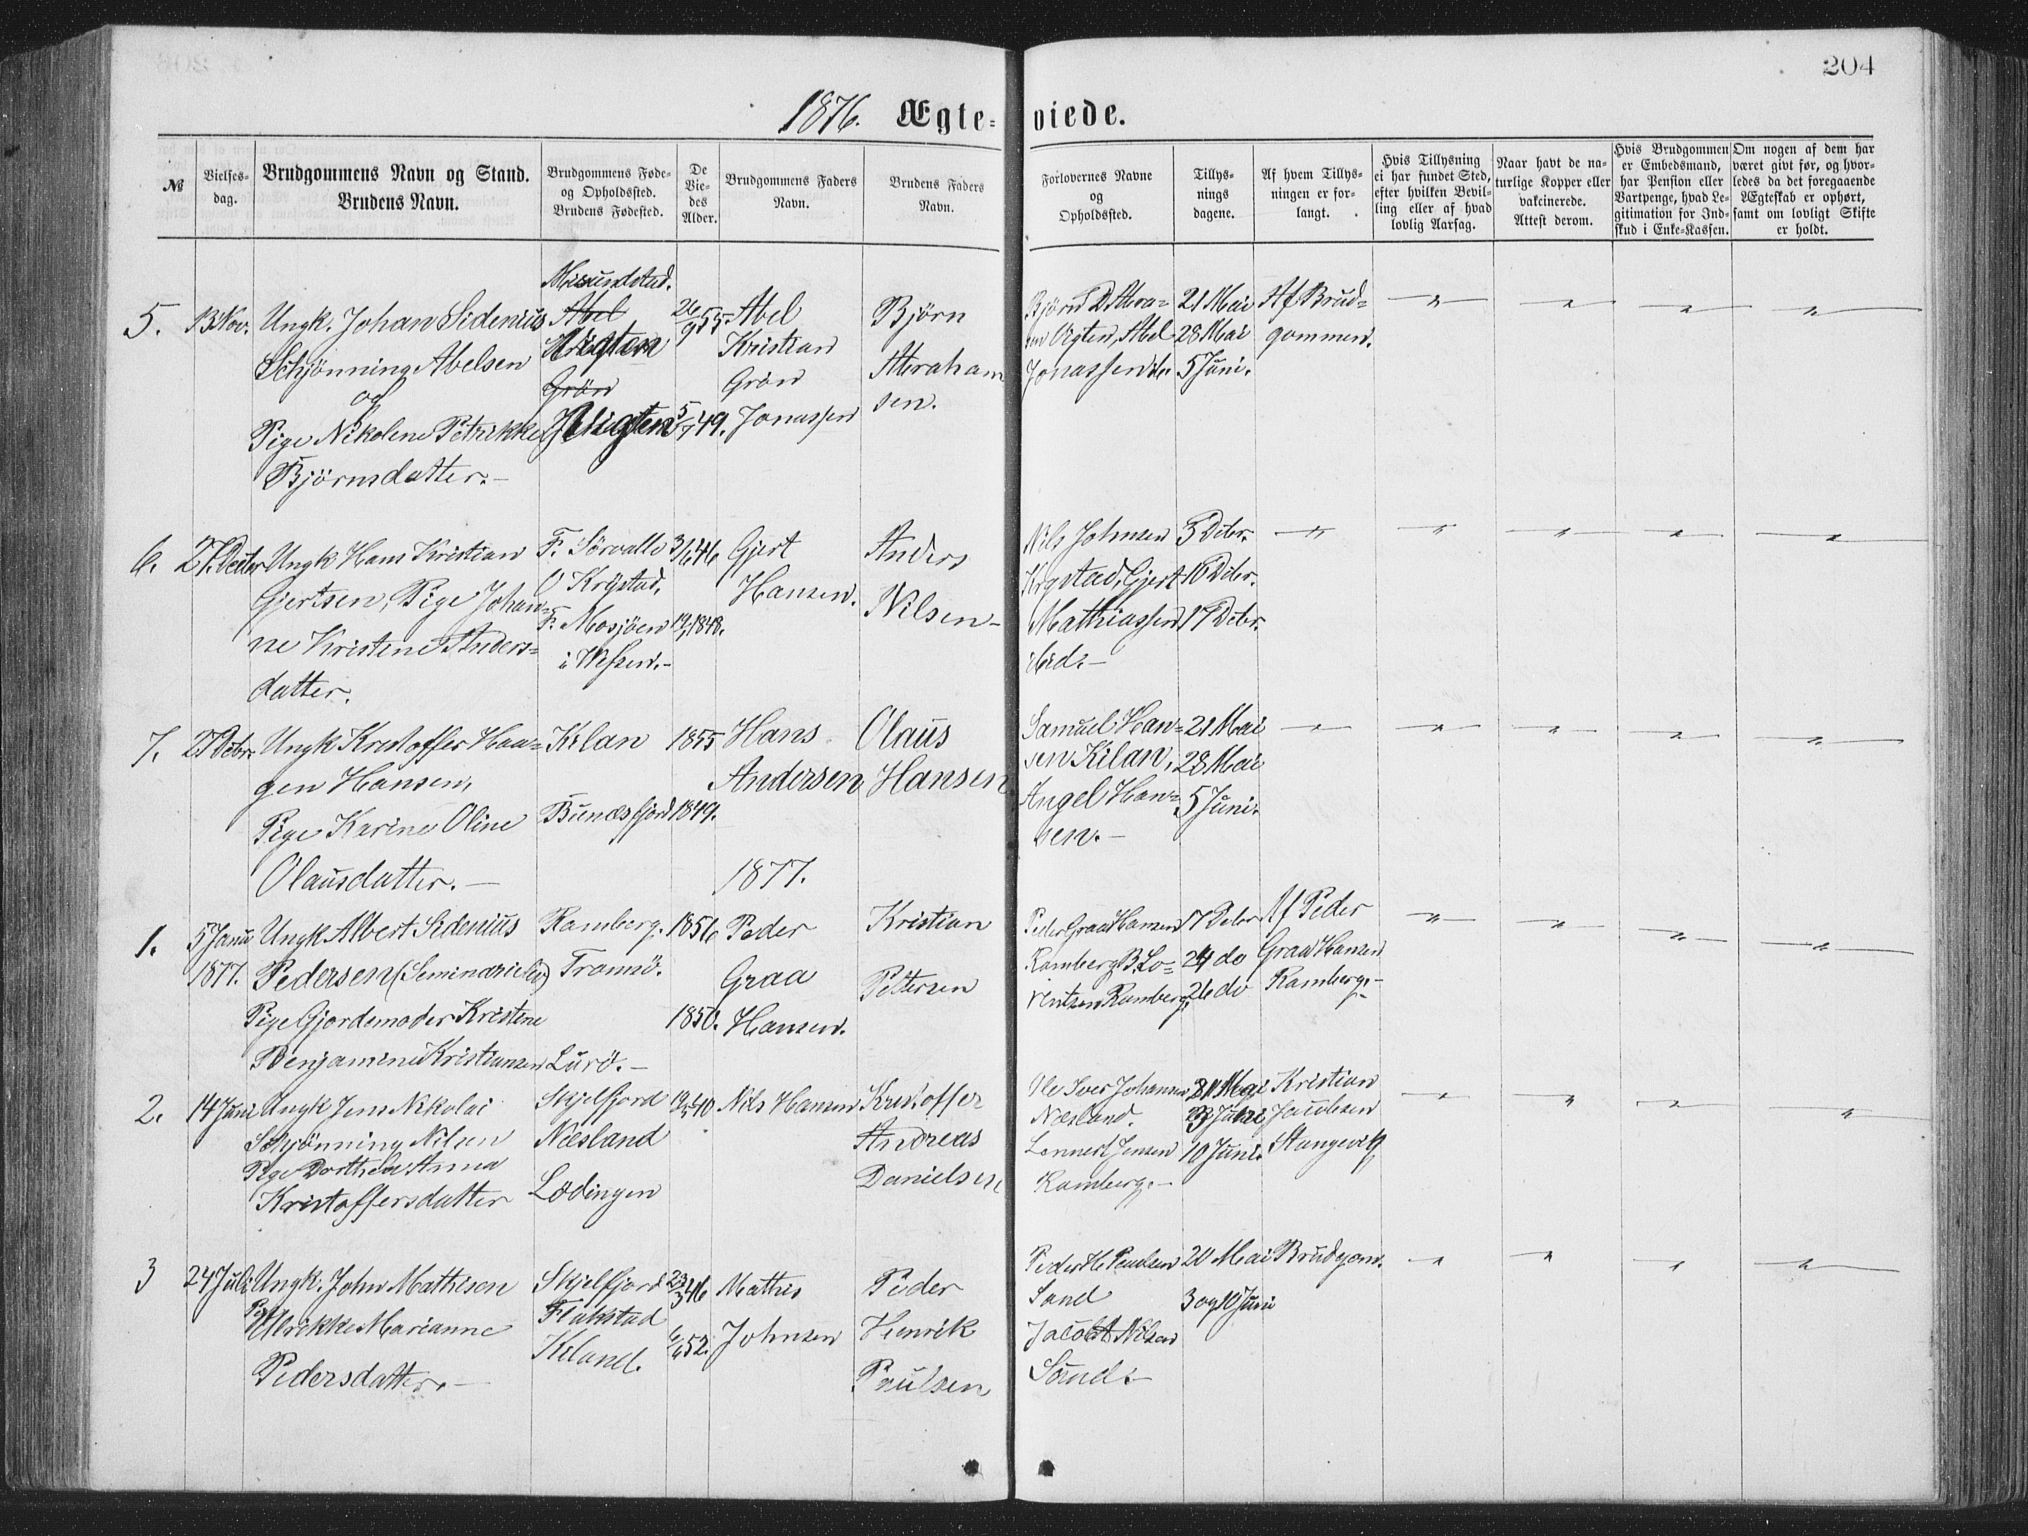 204
1876. Ægte-viede.
№
Vielses-
dag.
Brudgommens Navn og Stand.
Brudens Navn.
Brudgommens Føde-
og Opholdssted.
Brudens Fødested.
De
Vie-
des
Alder.
Brudgommens Faders
Navn.
Brudens Faders
Navn.
Forlovernes Navne
og
Opholdssted.
Tillys-
nings
dagene.
Af hvem Tillys-
ningen er for-
langt.
Hvis Tillysning
ei har fundet Sted,
efter hvilken Bevil-
ling eller af hvad
lovlig Aarsag.
Naar havt de na-
turlige Kopper eller
vakcinerede.
Attest derom.
Hvis Brudgommen
er Embedsmand,
har Pension eller
Vartpenge, hvad Le-
gitimation for Ind-
skud i Enke-Kassen.
Om nogen af dem har
været givt før, og hvor-
ledes da det foregaaende
Ægteskab er ophørt,
samt om lovligt Skifte
er holdt.
5.
13 Nov.
Ungk. Johan Sidenius
Schjønning Abelsen
og
Pige Nikoline Petrikke
Björnsdatter.-
Abel
Vigten
Grön
Vigten
26/9 55.
5/7 49.
Abel
Kristian
Grön
Jonassen
Björn
Abraham
sen.
Björn D Abra-
sen Vigten, Abel
Jonassen do.
21 Mai
28 Mai
5 Juni.
Af Brud-
gommen.
6.
27. Decbr
Ungk Hans Kristian
Gjertsen, Pige Johan-
ne Kristine Anders-
datter.
F. Sörvalle
O Krystad.
F. Mosjöen
i Vefsen.-
3/6 46
1848.
Gjert
Hansen.
Anders
Nilsen-
Nils Johnsen
Krystad, Gjert
Mathiassen
ibid.-
3 Debr.
10 Debr.
17 Debr.
7.
27 Debr.
Ungk Kristoffer Hau-
gen Hansen,
Pige Karine Oline
Olausdatter.-
Kilan
Bunæsfjord
1855
1849.
Hans
Andersen
Olaus
Hansen
Samuel Han-
sen Kilan,
Angel Han-
sen.-
21 Mai
28 Mai
5 Juni.
1877.
1.
5 Janu
1877.
Ungk Albert Sidenius
Pedersen (Seminarielev)
Pige Gjordemoder Kristine
Benjamine Kristiansen
Ramberg.
Tromsö.
Lurö.-
1856
1850.
Peder
Graa
Hansen.
Kristian
Pettersen
Peder Graa Hansen
Ramberg B. Lo-
rentsen Ramberg.
17 Debr
24 do
26 do
Af Peder
Graa Hansen
Ramberg.-
2.
14 Juni
Ungk Jens Nikolai
Schjönning Nilsen
Pige Dorthea Anna
Kristoffersdatter
Skjelfjord
Næsland
Lödingen
40
Nils Hansen
Kristoffer
Andreas
Danielsen
Ole Iver Johansen
Næsland.
Lennert Jensen
Ramberg.-
Mai
3 Juni
10 Juni.
Kristian
Jacobsen
Stangevik
3
24 Juli
Ungk. John Mathisen
Pige
Ulrikke Marianne
Pedersdatter.-
Skjelfjord
Flakstad
Kiland.
23/3 46
52.
Mathis
Johnsen
Peder
Henrik
Paulsen
Peder H. Paulsen
Sand
Jacob A Nilsen
Sund.-
20 Mai
3 og 10 Juni
Brudgom.